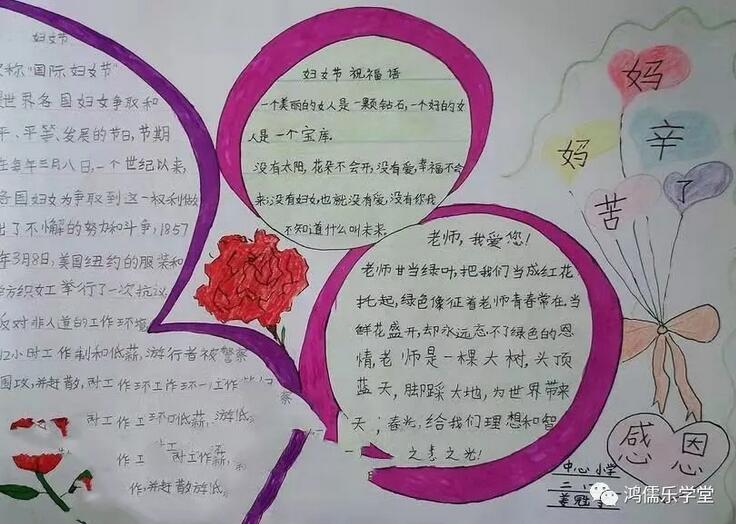 妇女节
称"国际妇女节"
世界各国妇女争取和
平、平等、发展的节日,节期
在每年三月八日,一个世纪以来,
各国妇女为争取到这一权利做
出了不懈的努力和斗争,1857
年3月8日,美国纽约的服装和
纺织女工举行了一次抗议
反对非人道的工作环境
12小时工作制和低薪,游行者被警察
围攻,并赶散,对工作环工作环一工作
察
对工作工环低薪,游低
工
作工 对工作薪
作,并赶散游低
妇女节祝福语
一个美丽的女人是一颗钻石,一个好的女
人是一个宝库.
没有太阳,花朵不会开,没有爱,幸福不会
来;没有妇女,也就没有爱,没有你我
不知道什么叫未来.
老师,我爱您!
老师甘当绿叶,把我们当成红花
托起,绿色像征着老师青春常在.当
鲜花盛开,却永远忘不了绿色的恩
情,老师是一棵大树,头顶
蓝天,脚踩大地,为世界带来
天;春光,给我们理想和智
之光!
妈
妈 辛
苦 了
感 恩
中心小学
鸿儒乐学堂